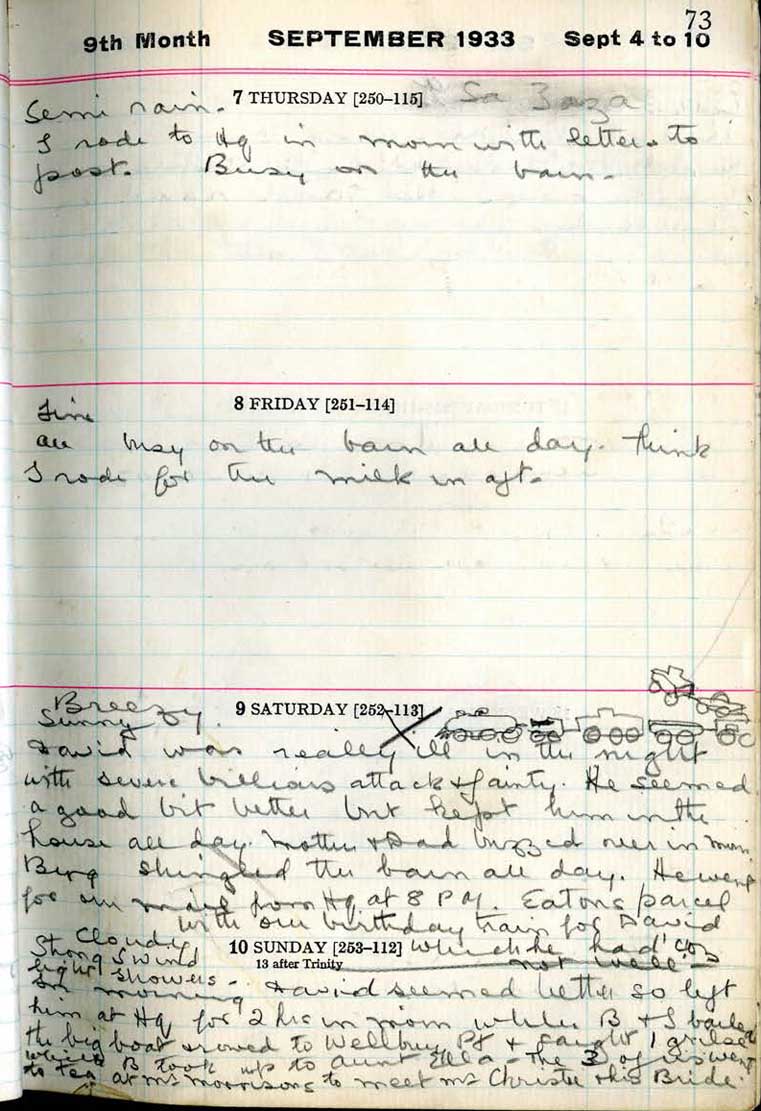 73
9th Month SEPTEMBER 1933 Sept 4 to 10
7 THURSDAY [250–115]
Semi rain.
I rode to Hq in morn with letters to
post. Busy on the barn.
8 FRIDAY [251–114]
Fine
all busy on the barn all day. Think
I rode for the milk in aft.
Breezy
9 SATURDAY [252–113]
Sunny.
David was really ill in the night
with severe billious attack & fainty. He seemed
a good bit better but kept him in the
house all day. Mother & Dad buzzed over in morn.
Berg shingled the barn all day. He went
for our mail from Hq at 8 PM. Eatons parcel
with our birthday train for David
which he had cos
not well –
10 SUNDAY [253–112]
13 after Trinity
Cloudy
Strong S wind
light showers –
in morning David seemed better so left
him at Hq for 2 hrs in morn while B & I bailed
the big boat & rowed to Wellbury Pt & caught 1 grilse
which B took up to Aunt Ella – The 3 of us went
to tea at Mrs Morrisons to meet Mr Christie & his Bride.